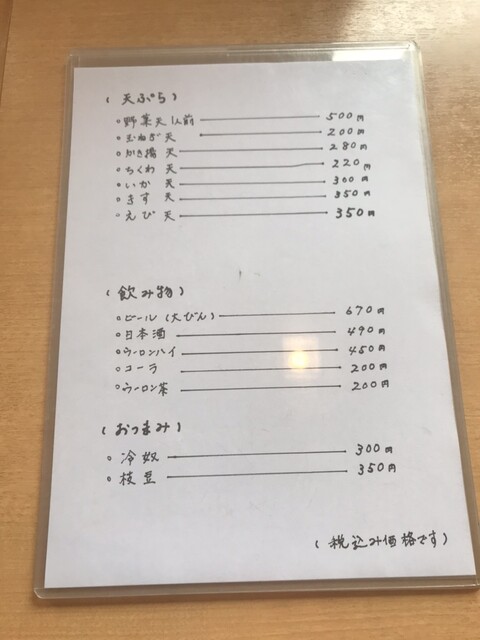 (天ぷら)
○野菜天1人前 500円
○玉ねぎ天 200円
○かき揚天 280円
○ちくわ天 220円
○いか天 300円
○きす天 350円
○えび天 350円
(飲み物)
○ビール(大びん) 670円
○日本酒 490円
○ウーロンハイ 450円
○コーラ 200円
○ウーロン茶 200円
(おつまみ)
○冷奴 300円
○枝豆 350円
(税込み価格です)